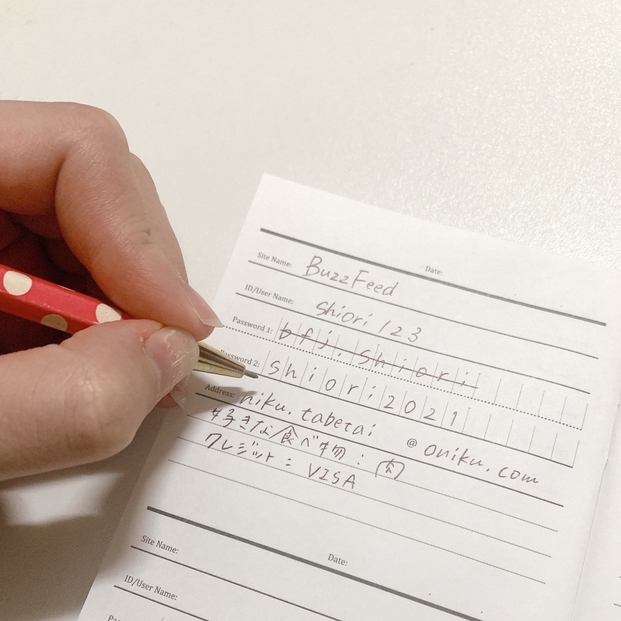 Site Name: BuzzFeed Date:
ID/User Name: Shiori 123
Password 1: bfj.shiori
Password 2: shiori2021
Address: niku.tabetai @ oniku.com
好きな食べ物：肉
クレジット：VISA
Site Name: Date:
ID/User Name: